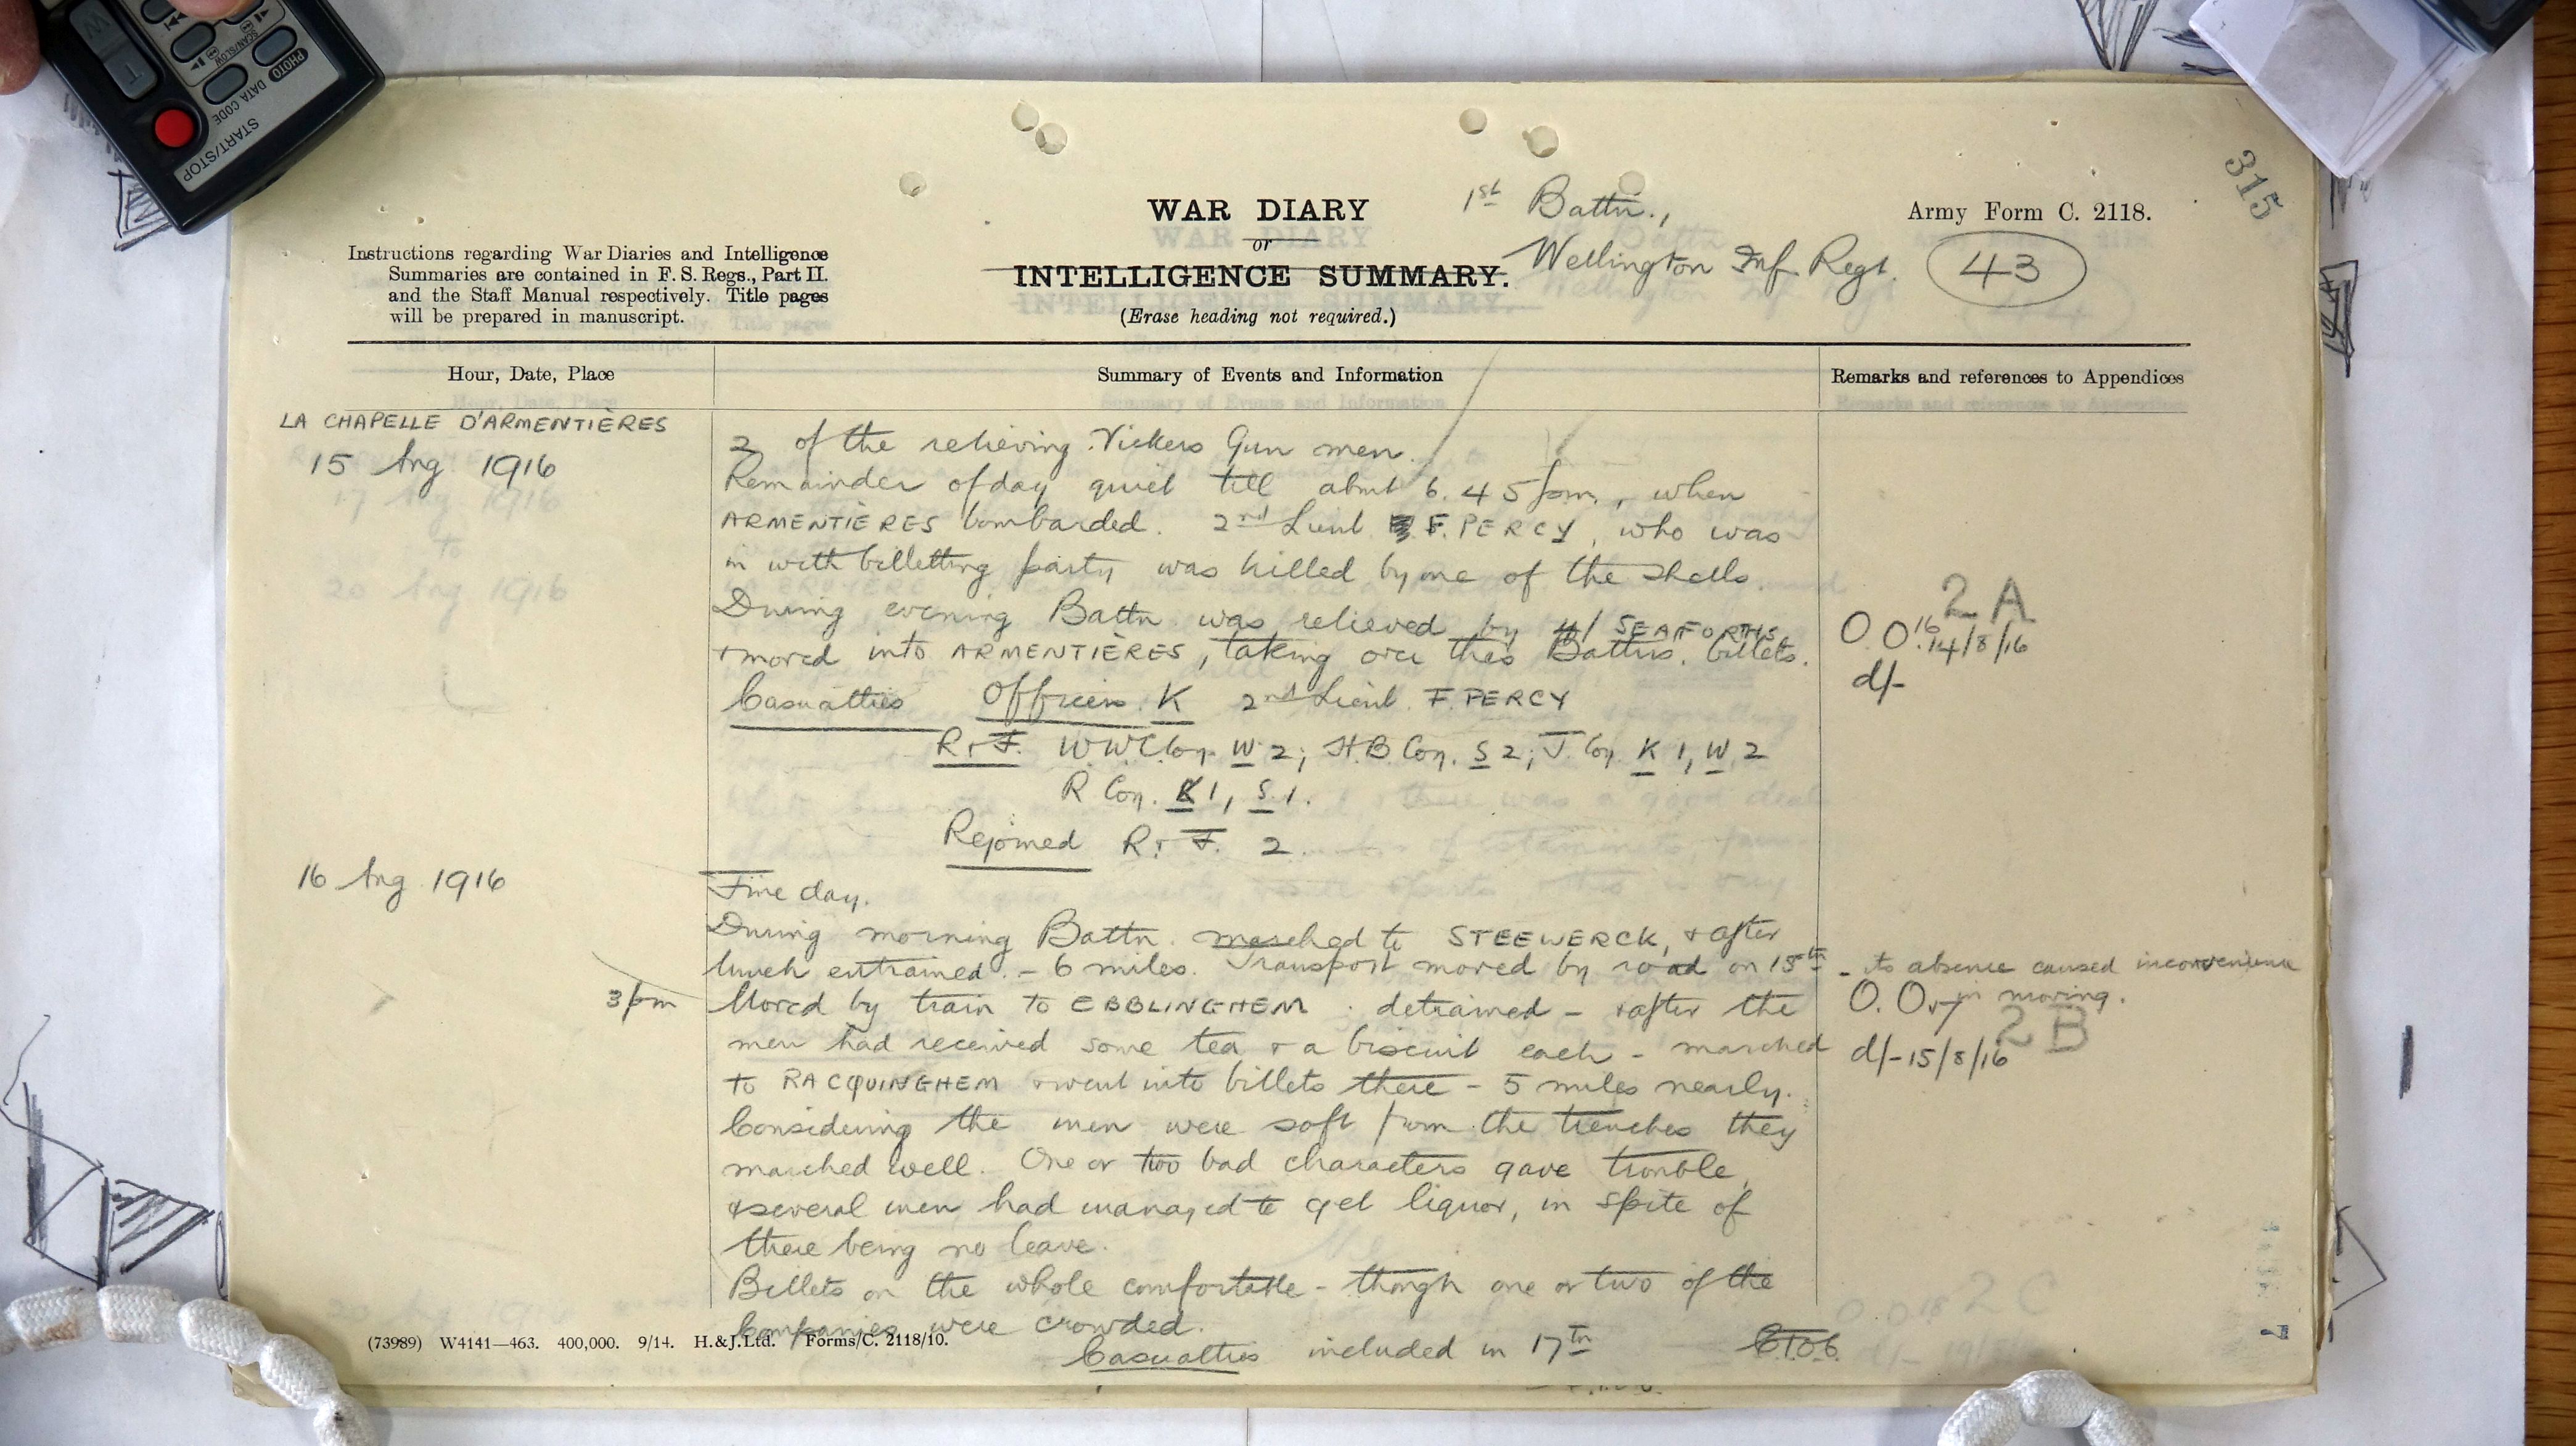 START/STOP
PHOTO
DATA CODE
SCAN/SLOW
W
T
315
WAR DIARY
or
INTELLIGENCE SUMMARY.
(Erase heading not required.)
1st Battn.,
Wellington Inf Regt.
Army Form C. 2118.
43
Instructions regarding War Diaries and Intelligence
Summaries are contained in F. S. Regs., Part II.
and the Staff Manual respectively. Title pages
will be prepared in manuscript.
Hour, Date, Place
Summary of Events and Information
Remarks and references to Appendices
LA CHAPELLE D'ARMENTIÈRES
15 Aug 1916
2 of the relieving Vickers Gun men.
Remainder of day quiet till abut 6.45 pm, when
ARMENTIÈRES bombarded. 2nd Lieut F. PERCY, who was
in with billetting party was killed by one of the shells.
During evening Battn was relieved by SEAFORTHS
+ moved into ARMENTIÈRES, taking over Battns. billets.
2A
O.O. 16
14/8/16
d/-
Casualties Officers K 2nd Lieut F. PERCY
R + F. W.W.C. Coy W 2; H.B Coy. S 2; T. Coy K 1, W 2
R Coy. K 1, S 1.
Rejoined R + F. 2.
16 Aug 1916
Fine day.
During morning Battn. marched to STEEWERCK, + after
lunch entrained. - 6 miles. Transport moved by road on 15th - its absence caused inconvenience
in moving.
3 pm
Moved by train to EBBLINGHEM. detrained - + after the
men had received some tea + a biscuit each - marched
to RACQUINGHEM + went into billets there - 5 miles nearly.
O.O. 17
2B
d/- 15/8/16
Considering the men were soft from the trenches they
marched well. One or two bad characters gave trouble,
+ several men had managed to get liquor, in spite of
there being no leave.
Billets on the whole comfortable - though one or two of the
Companies were crowded.
Casualties included in 17th
(73989) W4141—463. 400,000. 9/14. H.&J.Ltd. Forms/C. 2118/10.